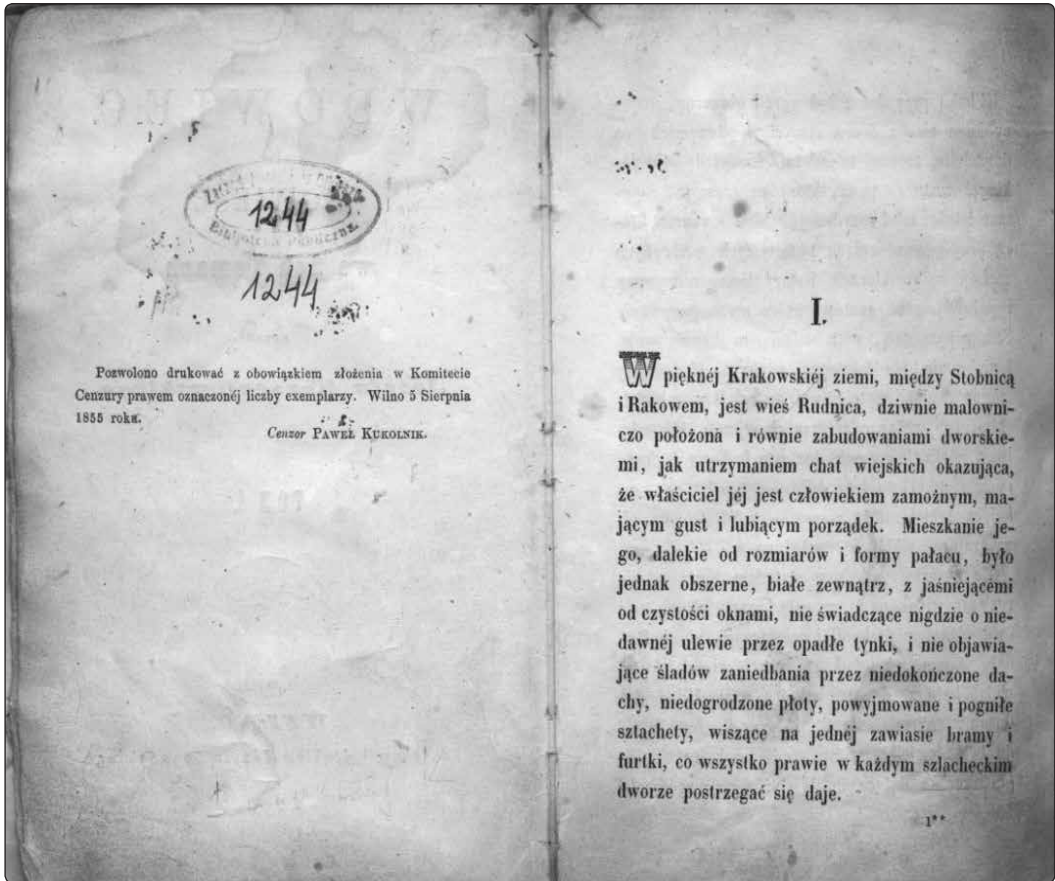 1244
Biblioteka Publiczna.
1244
Pozwolono drukować z obowiązkiem złożenia w Komitecie
Cenzury prawem oznaczonéj liczby exemplarzy. Wilno 5 Sierpnia
1855 roku.
Cenzor PAWEŁ KUKOLNIK.
I.
W pięknéj Krakowskiéj ziemi, między Stobnicą
i Rakowem, jest wieś Rudnica, dziwnie malowni-
czo położona i równie zabudowaniami dworskie-
mi, jak utrzymaniem chat wiejskich okazująca,
że właściciel jéj jest człowiekiem zamożnym, ma-
jącym gust i lubiącym porządek. Mieszkanie je-
go, dalekie od rozmiarów i formy pałacu, było
jednak obszerne, białe zewnątrz, z jaśniejącémi
od czystości oknami, nie świadczące nigdzie o nie-
dawnéj ulewie przez opadłe tynki, i nie objawia-
jące śladów zaniedbania przez niedokończone da-
chy, niedogrodzone płoty, powyjmowane i pogniłe
sztachety, wiszące na jednéj zawiasie bramy i
furtki, co wszystko prawie w każdym szlacheckim
dworze postrzegać się daje.
1**